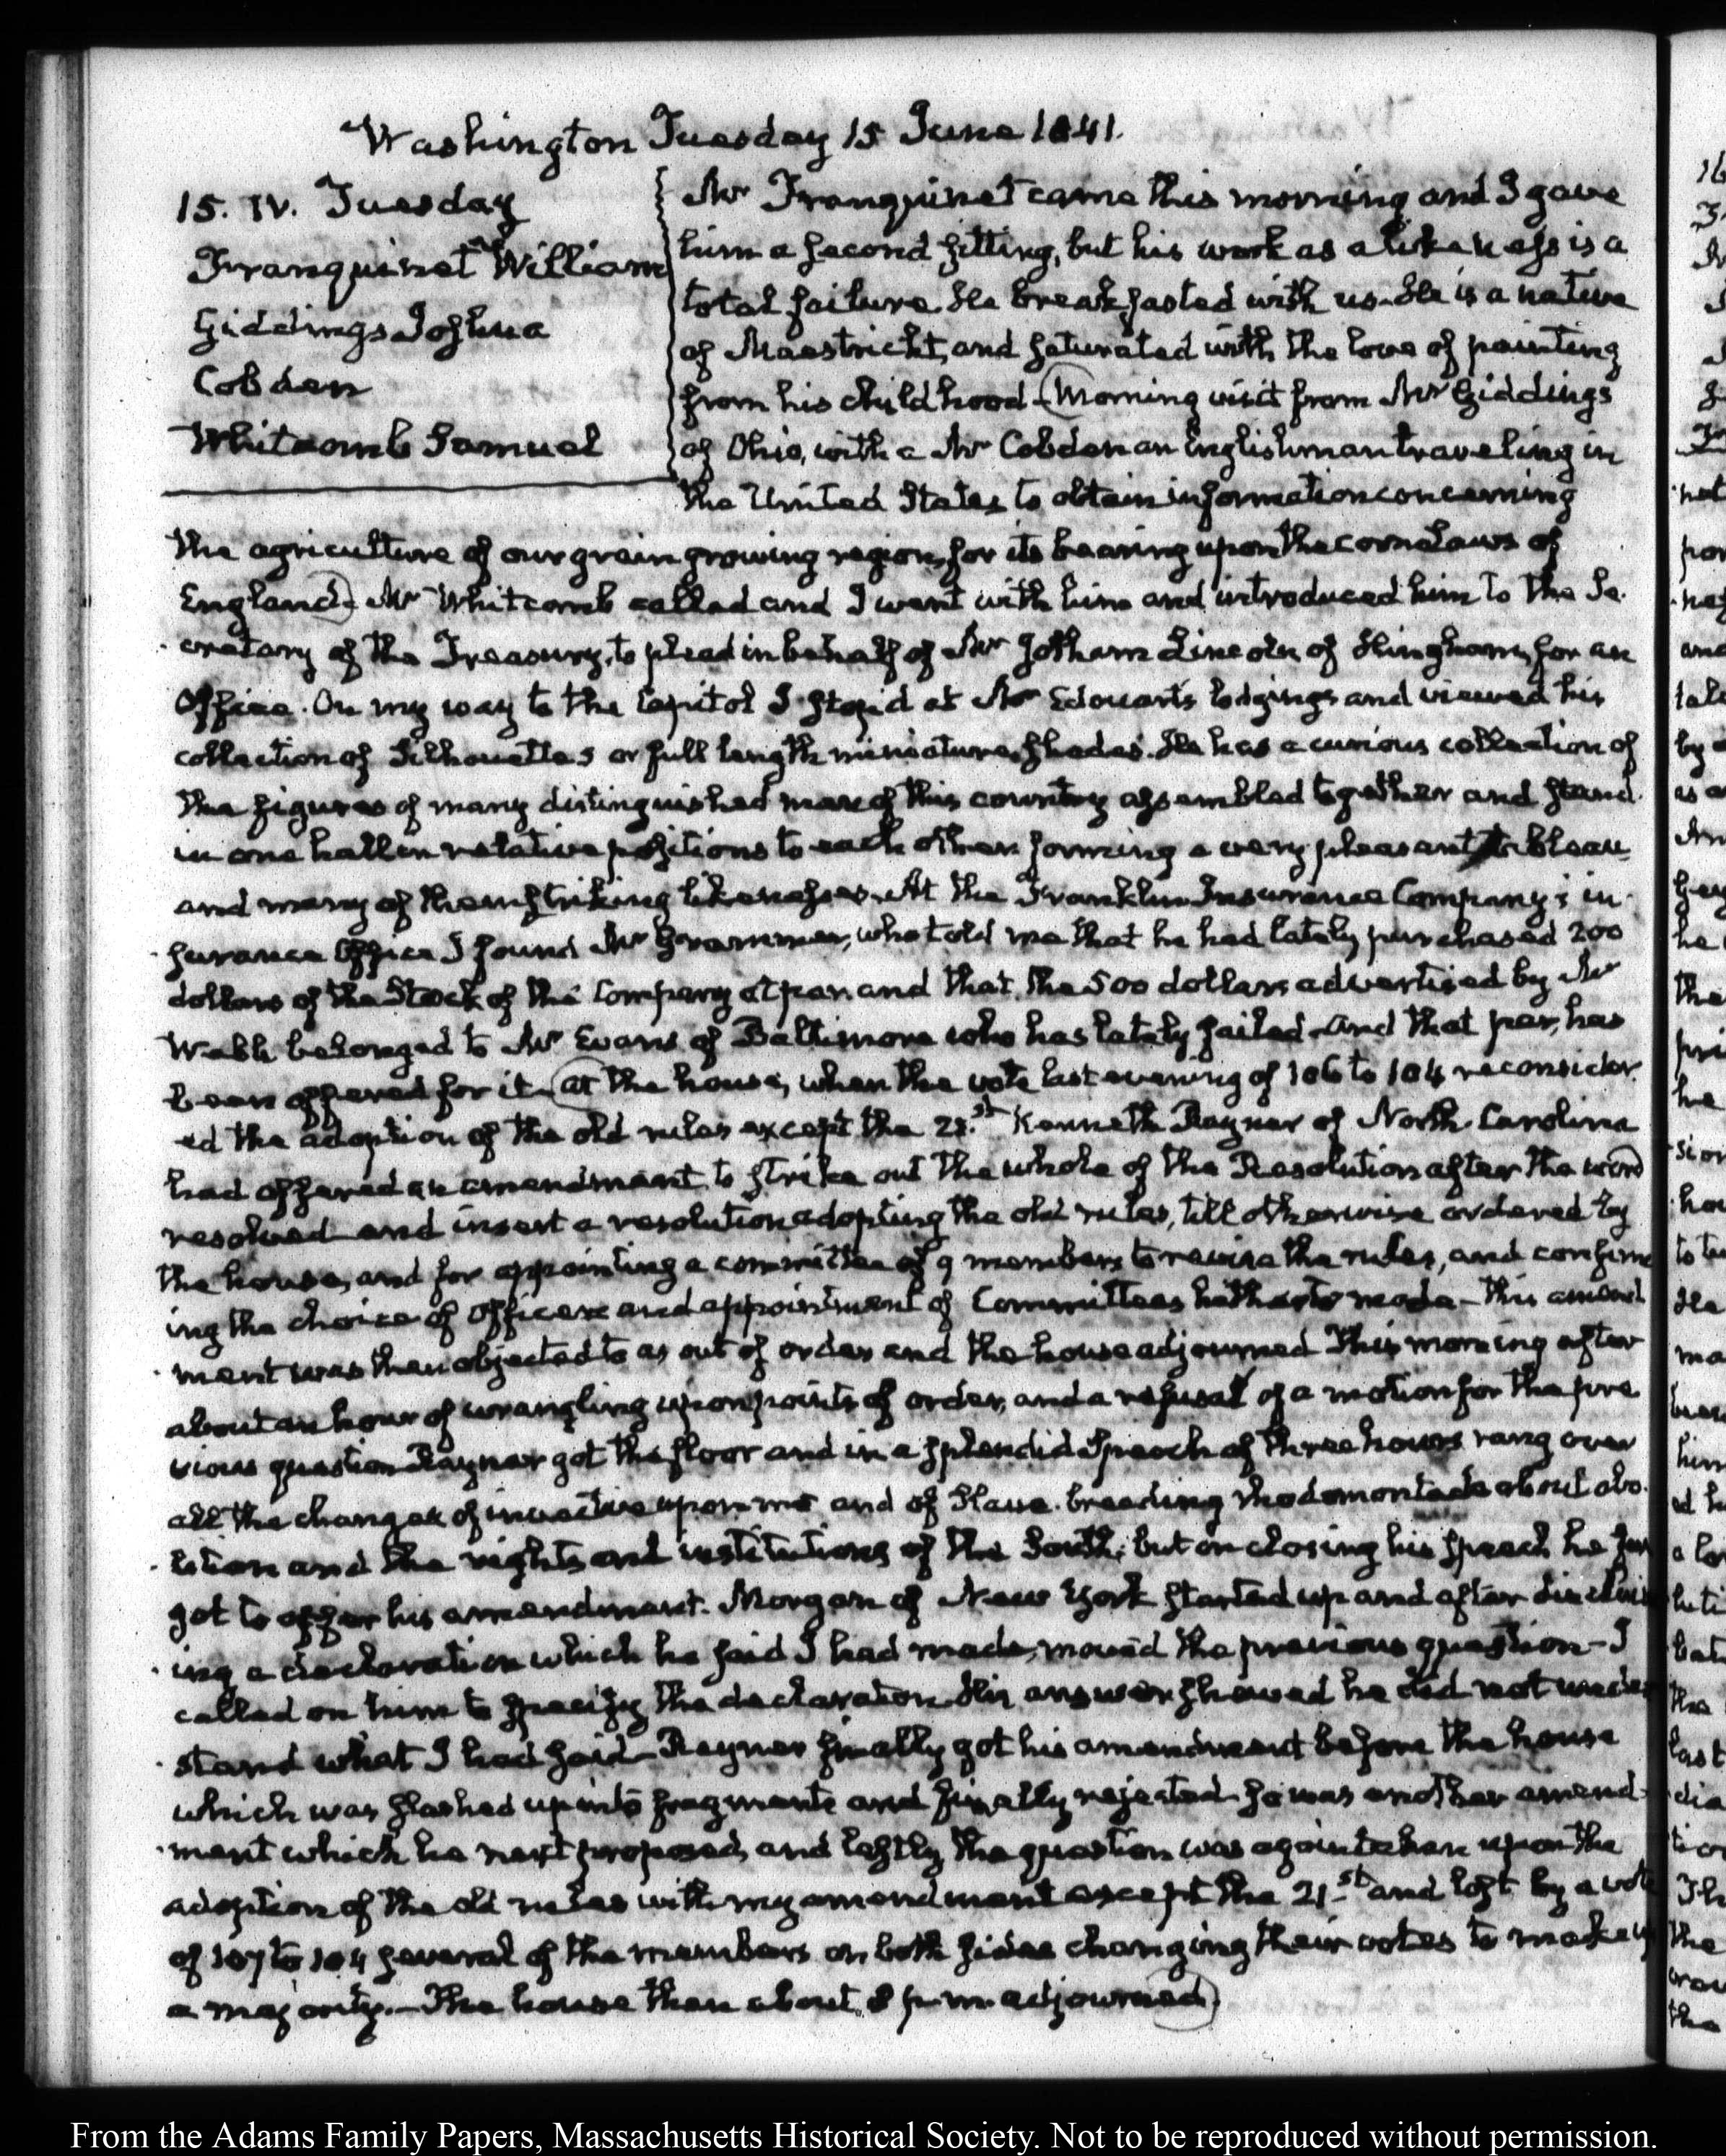 Washington Tuesday 15 June 1841.
15. IV. Tuesday
Franquinet William
Giddings Joshua
Cobden
Whitcomb Samuel
Mr Franquinet came this morning and I gave
him a second sitting, but his work as a likeness is a
total failure. He breakfasted with us. He is a native
of Maestricht, and saturated with the love of painting
from his childhood—Morning visit from Mr Giddings
of Ohio, with a Mr Cobden an Englishman traveling in
the United States to obtain information concerning
the agriculture of our grain growing region, for its bearing upon the corn Laws of
England. Mr Whitcomb called and I went with him and introduced him to the Se-
cretary of the Treasury, to plead in behalf of Mr Jotham Lincoln of Hingham, for an
Office. On my way to the Capitol I stop'd at Mr Edouart's lodgings and viewed his
collection of Silhouettes or full length miniature shades. He has a curious collection of
the figures of many distinguished men of this country assembled together and stand-
in one hall in relative positions to each other forming a very pleasant tableau
and many of them striking likenesses. At the Franklin Insurance Company's in-
surance Office I found Mr Grammer, who told me that he had lately purchased 200
dollars of the Stock of the Company at par and that the 500 dollars advertised by Mr
Webb belonged to Mr Evans of Baltimore who has lately failed—And that par, has
been offered for it—at the house, when the vote last evening of 106 to 104 reconsider-
ed the adoption of the old rules except the 21.st Kenneth Rayner of North-Carolina
had offered an amendment to strike out the whole of the Resolution after the word
resolved and insert a resolution adopting the old rules, till otherwise ordered by
the house, and for appointing a committee of 9 members to revise the rules, and confirm-
ing the choice of officers and appointment of Committees hitherto made—this amend-
ment was then objected to as out of order and the house adjourned This morning after
about an hour of wrangling upon points of order, and a refusal of a motion for the pre-
vious question Rayner got the floor and in a splendid Speech of three hours rang over
all the changes of invective upon me and of Slave-breeding rhodomontade about abo-
lition and the rights and institutions of the South; but on closing his speech he for-
got to offer his amendment. Morgan of New York started up and after disclaim-
ing a declaration which he said I had made, moved the previous question—I
called on him to specify the declaration. His answer showed he did not under-
stand what I had said—Rayner finally got his amendment before the house
which was slashed up into fragments and finally rejected—so was another amend-
ment which he next proposed, and lastly the question was again taken upon the
adoption of the old rules with my amendment except the 21.st and lost by a vote
of 107 to 104 several of the members on both sides changing their votes to make up
a majority.—The house then about 8 p.m. adjourned
From the Adams Family Papers, Massachusetts Historical Society. Not to be reproduced without permission.